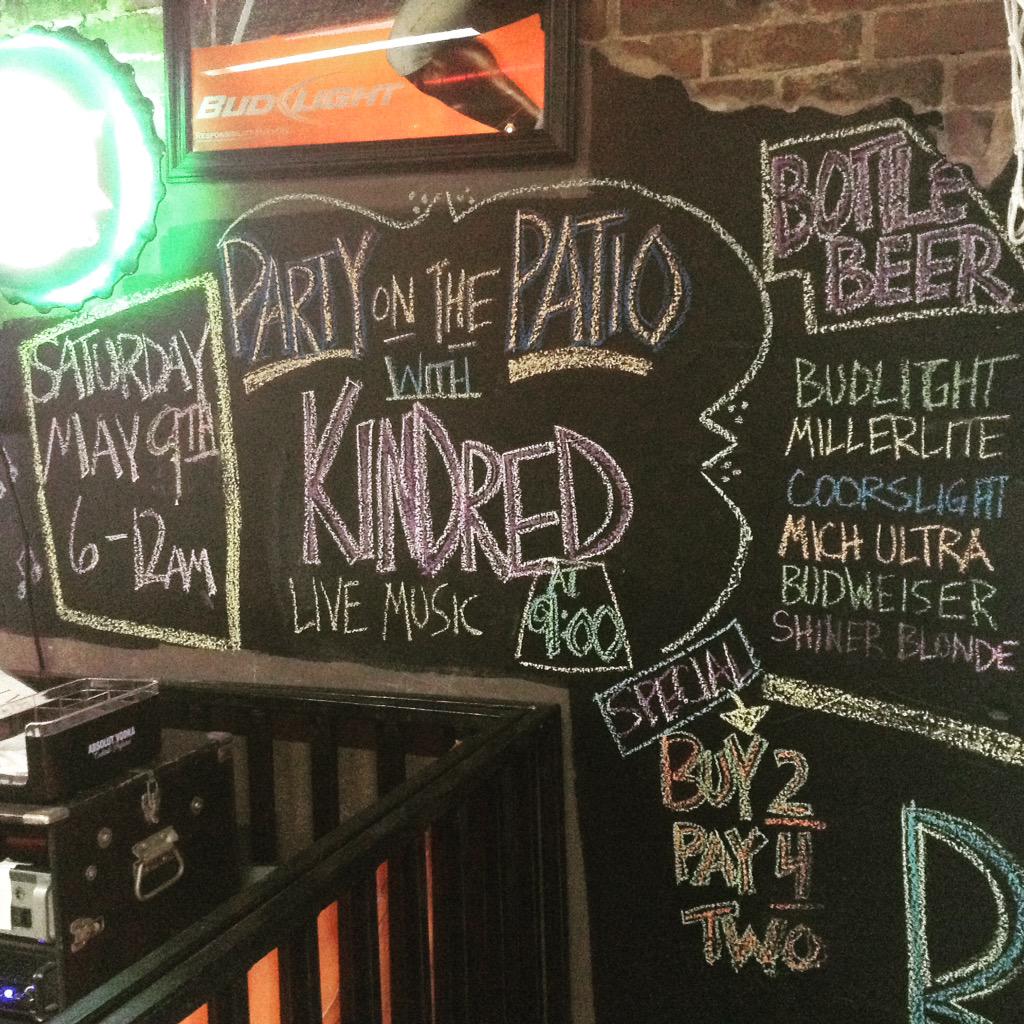 BUD LIGHT
PARTY ON THE PATIO
WITH
KINDRED
LIVE MUSIC
AT
9:00
SATURDAY
MAY 9TH
6-12AM
BOTTLE
BEER
BUDLIGHT
MILLERLITE
COORSLIGHT
MICH ULTRA
BUDWEISER
SHINER BLONDE
SPECIAL
BUY 2
PAY 4
TWO
ABSOLUT VODKA